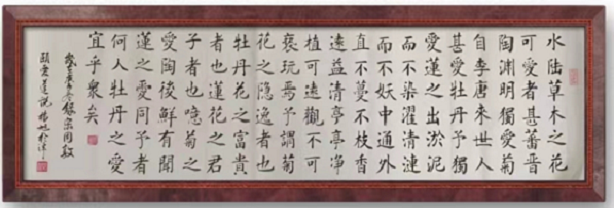 水陸草木之花
可愛者甚蕃晋
陶渊明獨愛菊
自李唐来世人
甚愛牡丹予獨
愛蓮之出淤泥
而不染濯清漣
而不妖中通外
直不蔓不枝香
遠益清亭亭净
植可遠觀不可
褻玩焉予謂菊
花之隐逸者也
牡丹花之富貴
者也蓮花之君
子者也噫菊之
愛陶後鮮有聞
蓮之愛同予者
何人牡丹之愛
宜乎衆矣
錄宋周敦
頤愛蓮説